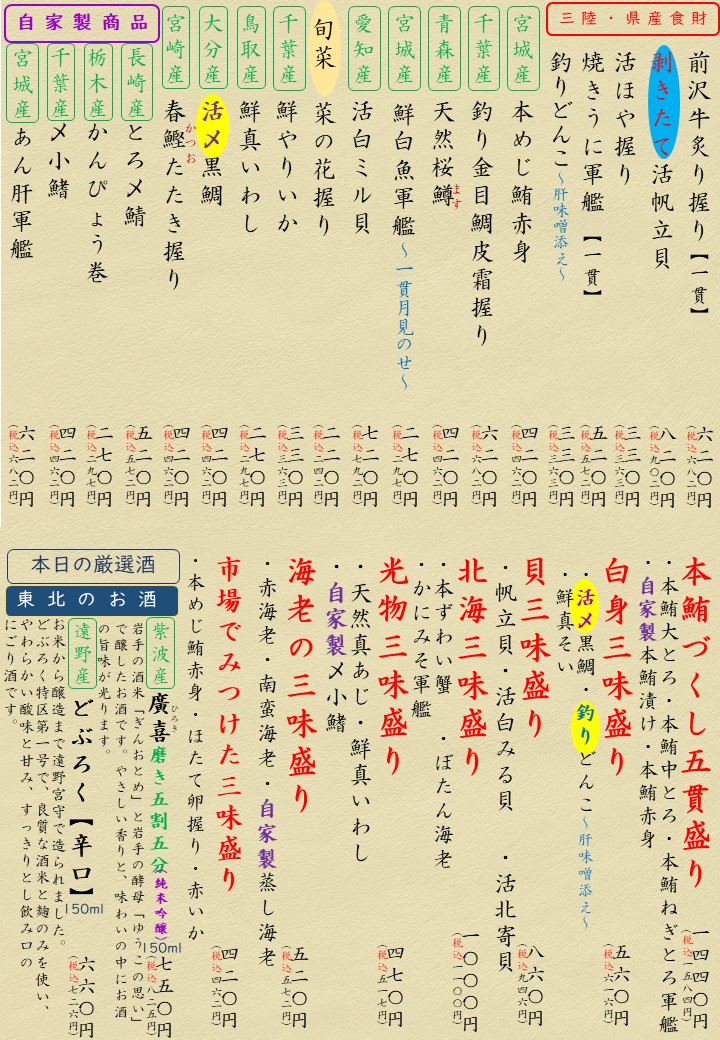 三陸・県産食財
前沢牛炙り握り【一貫】
六二〇円
(税込六八二円)
剥きたて活帆立貝
八二〇円
(税込九〇二円)
活ほや握り
三三〇円
(税込三六三円)
焼きうに軍艦 【一貫】
五二〇円
(税込五七二円)
釣りどんこ~肝味噌添え~
三三〇円
(税込三六三円)
宮城産
本めじ鮪赤身
四二〇円
(税込四六二円)
千葉産
釣り金目鯛皮霜握り
六二〇円
(税込六八二円)
青森産
天然桜鱒
ます
四二〇円
(税込四六二円)
宮城産
鮮白魚軍艦~一貫月見のせ~
二七〇円
(税込二九七円)
愛知産
活白ミル貝
七二〇円
(税込七九二円)
旬菜
菜の花握り
二二〇円
(税込二四二円)
千葉産
鮮やりいか
三三〇円
(税込三六三円)
鳥取産
鮮真いわし
二七〇円
(税込二九七円)
大分産
活〆黒鯛
四二〇円
(税込四六二円)
宮崎産
春鰹たたき握り
かつお
四二〇円
(税込四六二円)
自家製商品
長崎産
とろ〆鯖
五二〇円
(税込五七二円)
栃木産
かんぴょう巻
二七〇円
(税込二九七円)
千葉産
〆小鰭
四二〇円
(税込四六二円)
宮城産
あん肝軍艦
六二〇円
(税込六八二円)
本鮪づくし五貫盛り
一四四〇円
(税込一五八四円)
・本鮪大とろ・本鮪中とろ・本鮪ねぎとろ軍艦
・自家製本鮪漬け・本鮪赤身
白身三味盛り
五六〇円
(税込六一六円)
・活〆黒鯛・釣りどんこ~肝味噌添え~
・鮮真そい
貝三味盛り
八六〇円
(税込九四六円)
・帆立貝・活白みる貝 ・活北寄貝
北海三味盛り
一〇〇〇円
(税込一一〇〇円)
・本ずわい蟹 ・ぼたん海老
・かにみそ軍艦
光物三味盛り
四七〇円
(税込五一七円)
・天然真あじ・鮮真いわし
・自家製〆小鰭
海老の三味盛り
五二〇円
(税込五七二円)
・赤海老・南蛮海老・自家製蒸し海老
市場でみつけた三味盛り
四二〇円
(税込四六二円)
・本めじ鮪赤身・ほたて卵握り・赤いか
本日の厳選酒
東北のお酒
紫波産
廣喜磨き五割五分(純米吟醸)150ml
ひろき
七五〇円
(税込八二五円)
岩手の酒米「ぎんおとめ」と岩手の酵母「ゆうこの思い」
で醸したお酒です。やさしい香りと、味わいの中にお酒
の旨味が光ります。
遠野産
どぶろく【辛口】150ml
六六〇円
(税込七二六円)
お米から醸造まで遠野宮守で造られました。
どぶろく特区第一号で、良質な酒米と麹のみを使い、
やわらかい酸味と甘み、すっきりとし飲み口の
にごり酒です。